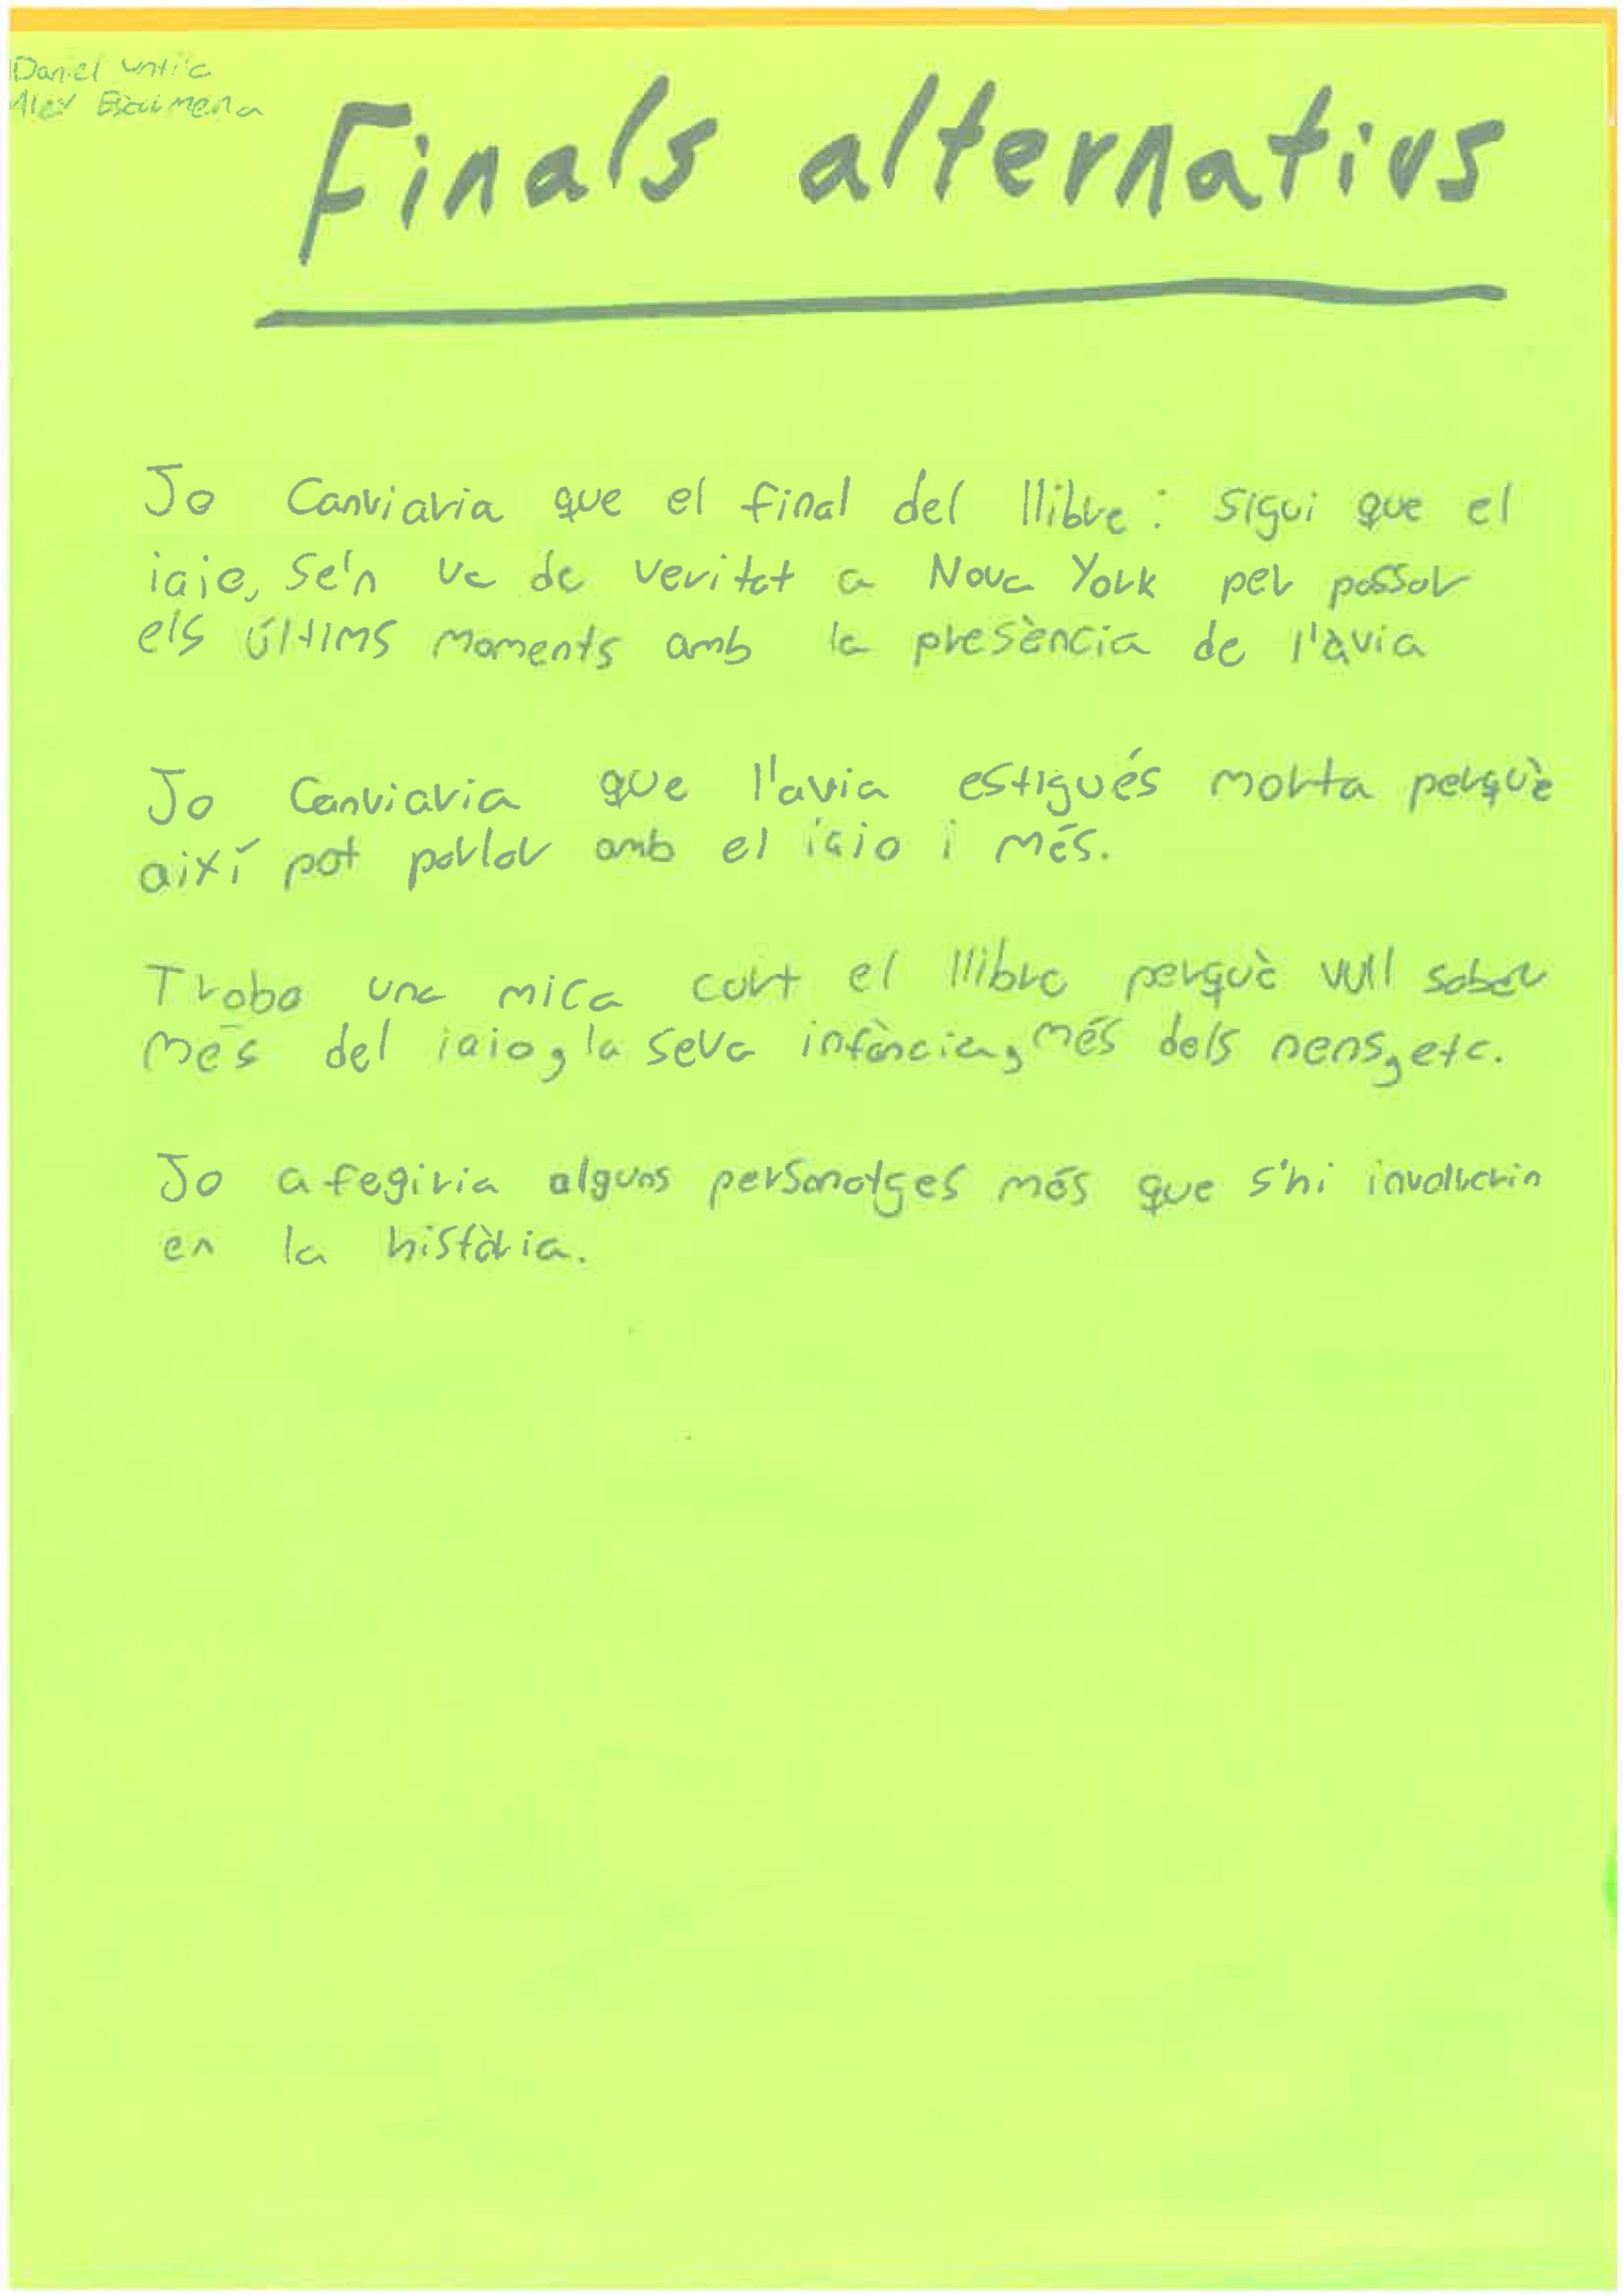 Daniel
Alex
Finals alternatius
Jo Canviaria que el final del llibre: sigui que el
iaio, se'n va de veritat a Nova York per passar
els últims moments amb la presència de l'àvia
Jo Canviaria que l'avia estigués morta perquè
així pot parlar amb el iaio i més.
Trobo una mica curt el llibre perquè vull saber
més del iaio, la seva infància, més dels nens, etc.
Jo afegiria alguns personatges més que s'hi involucrin
en la història.